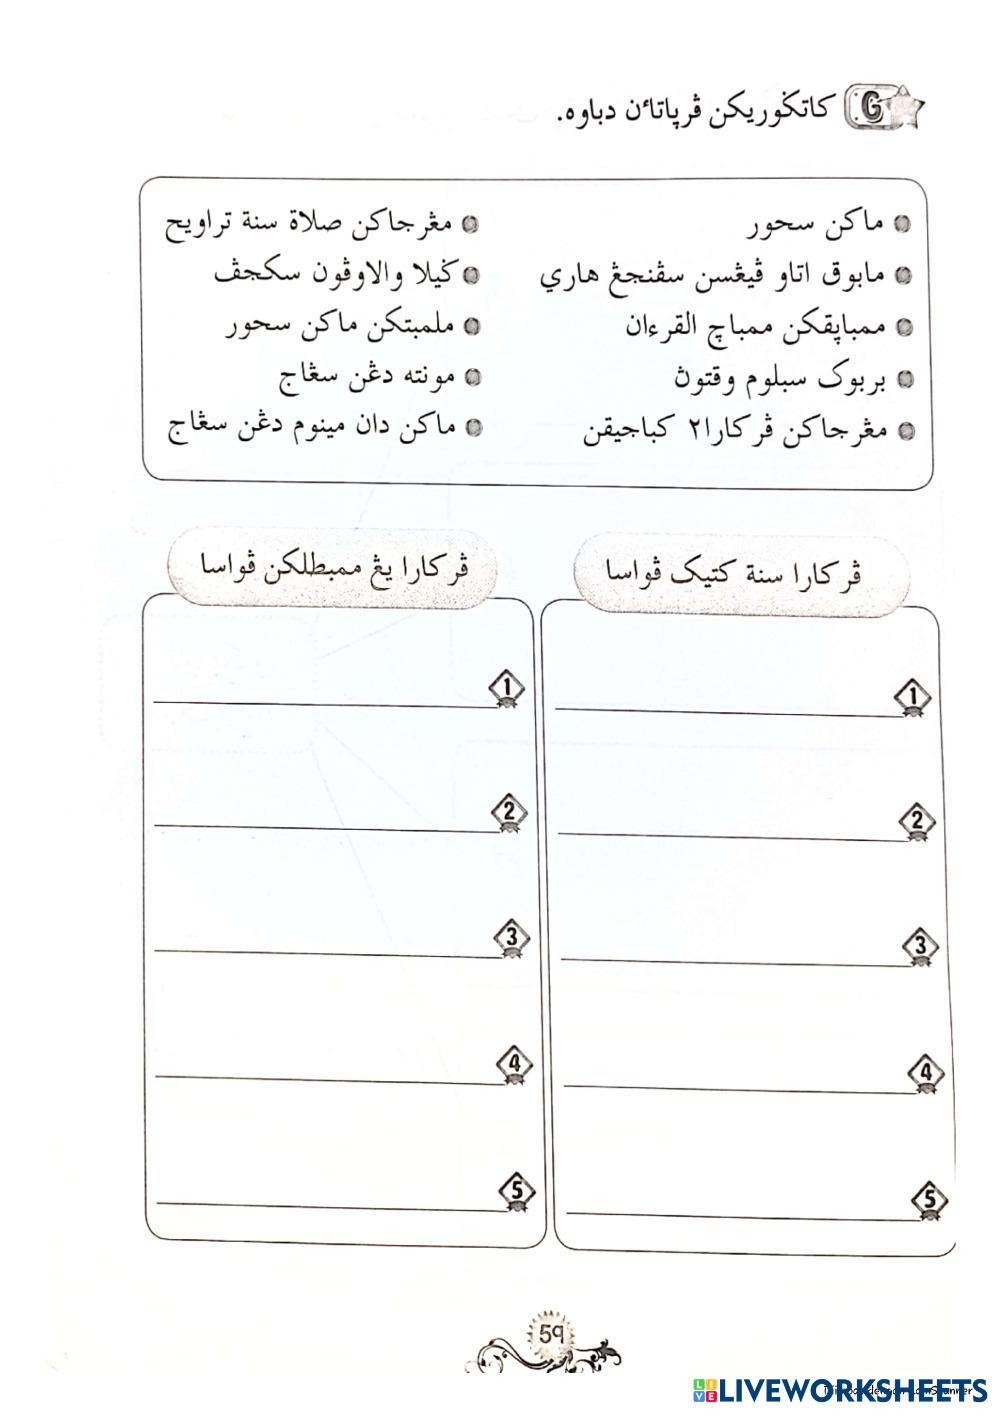 G كاتݢوريكن ڤرڽاتاءن دباوه.
ماكن سحور
مابوق اتاو ڤيڠسن سڤنجڠ هاري
ممباڽقكن ممباچ القرءان
بربوک سبلوم وقتوڽ
مڠرجاكن ڤركارا٢ كباجيقن
مڠرجاكن صلاة سنة تراويح
ݢيلا والاوڤون سكجڤ
ملمبتكن ماكن سحور
مونته دڠن سڠاج
ماكن دان مينوم دڠن سڠاج
ڤركارا سنة كتيک ڤواسا
1
2
3
4
5
ڤركارا يڠ ممبطلكن ڤواسا
1
2
3
4
5
59
LIVEWORKSHEETS